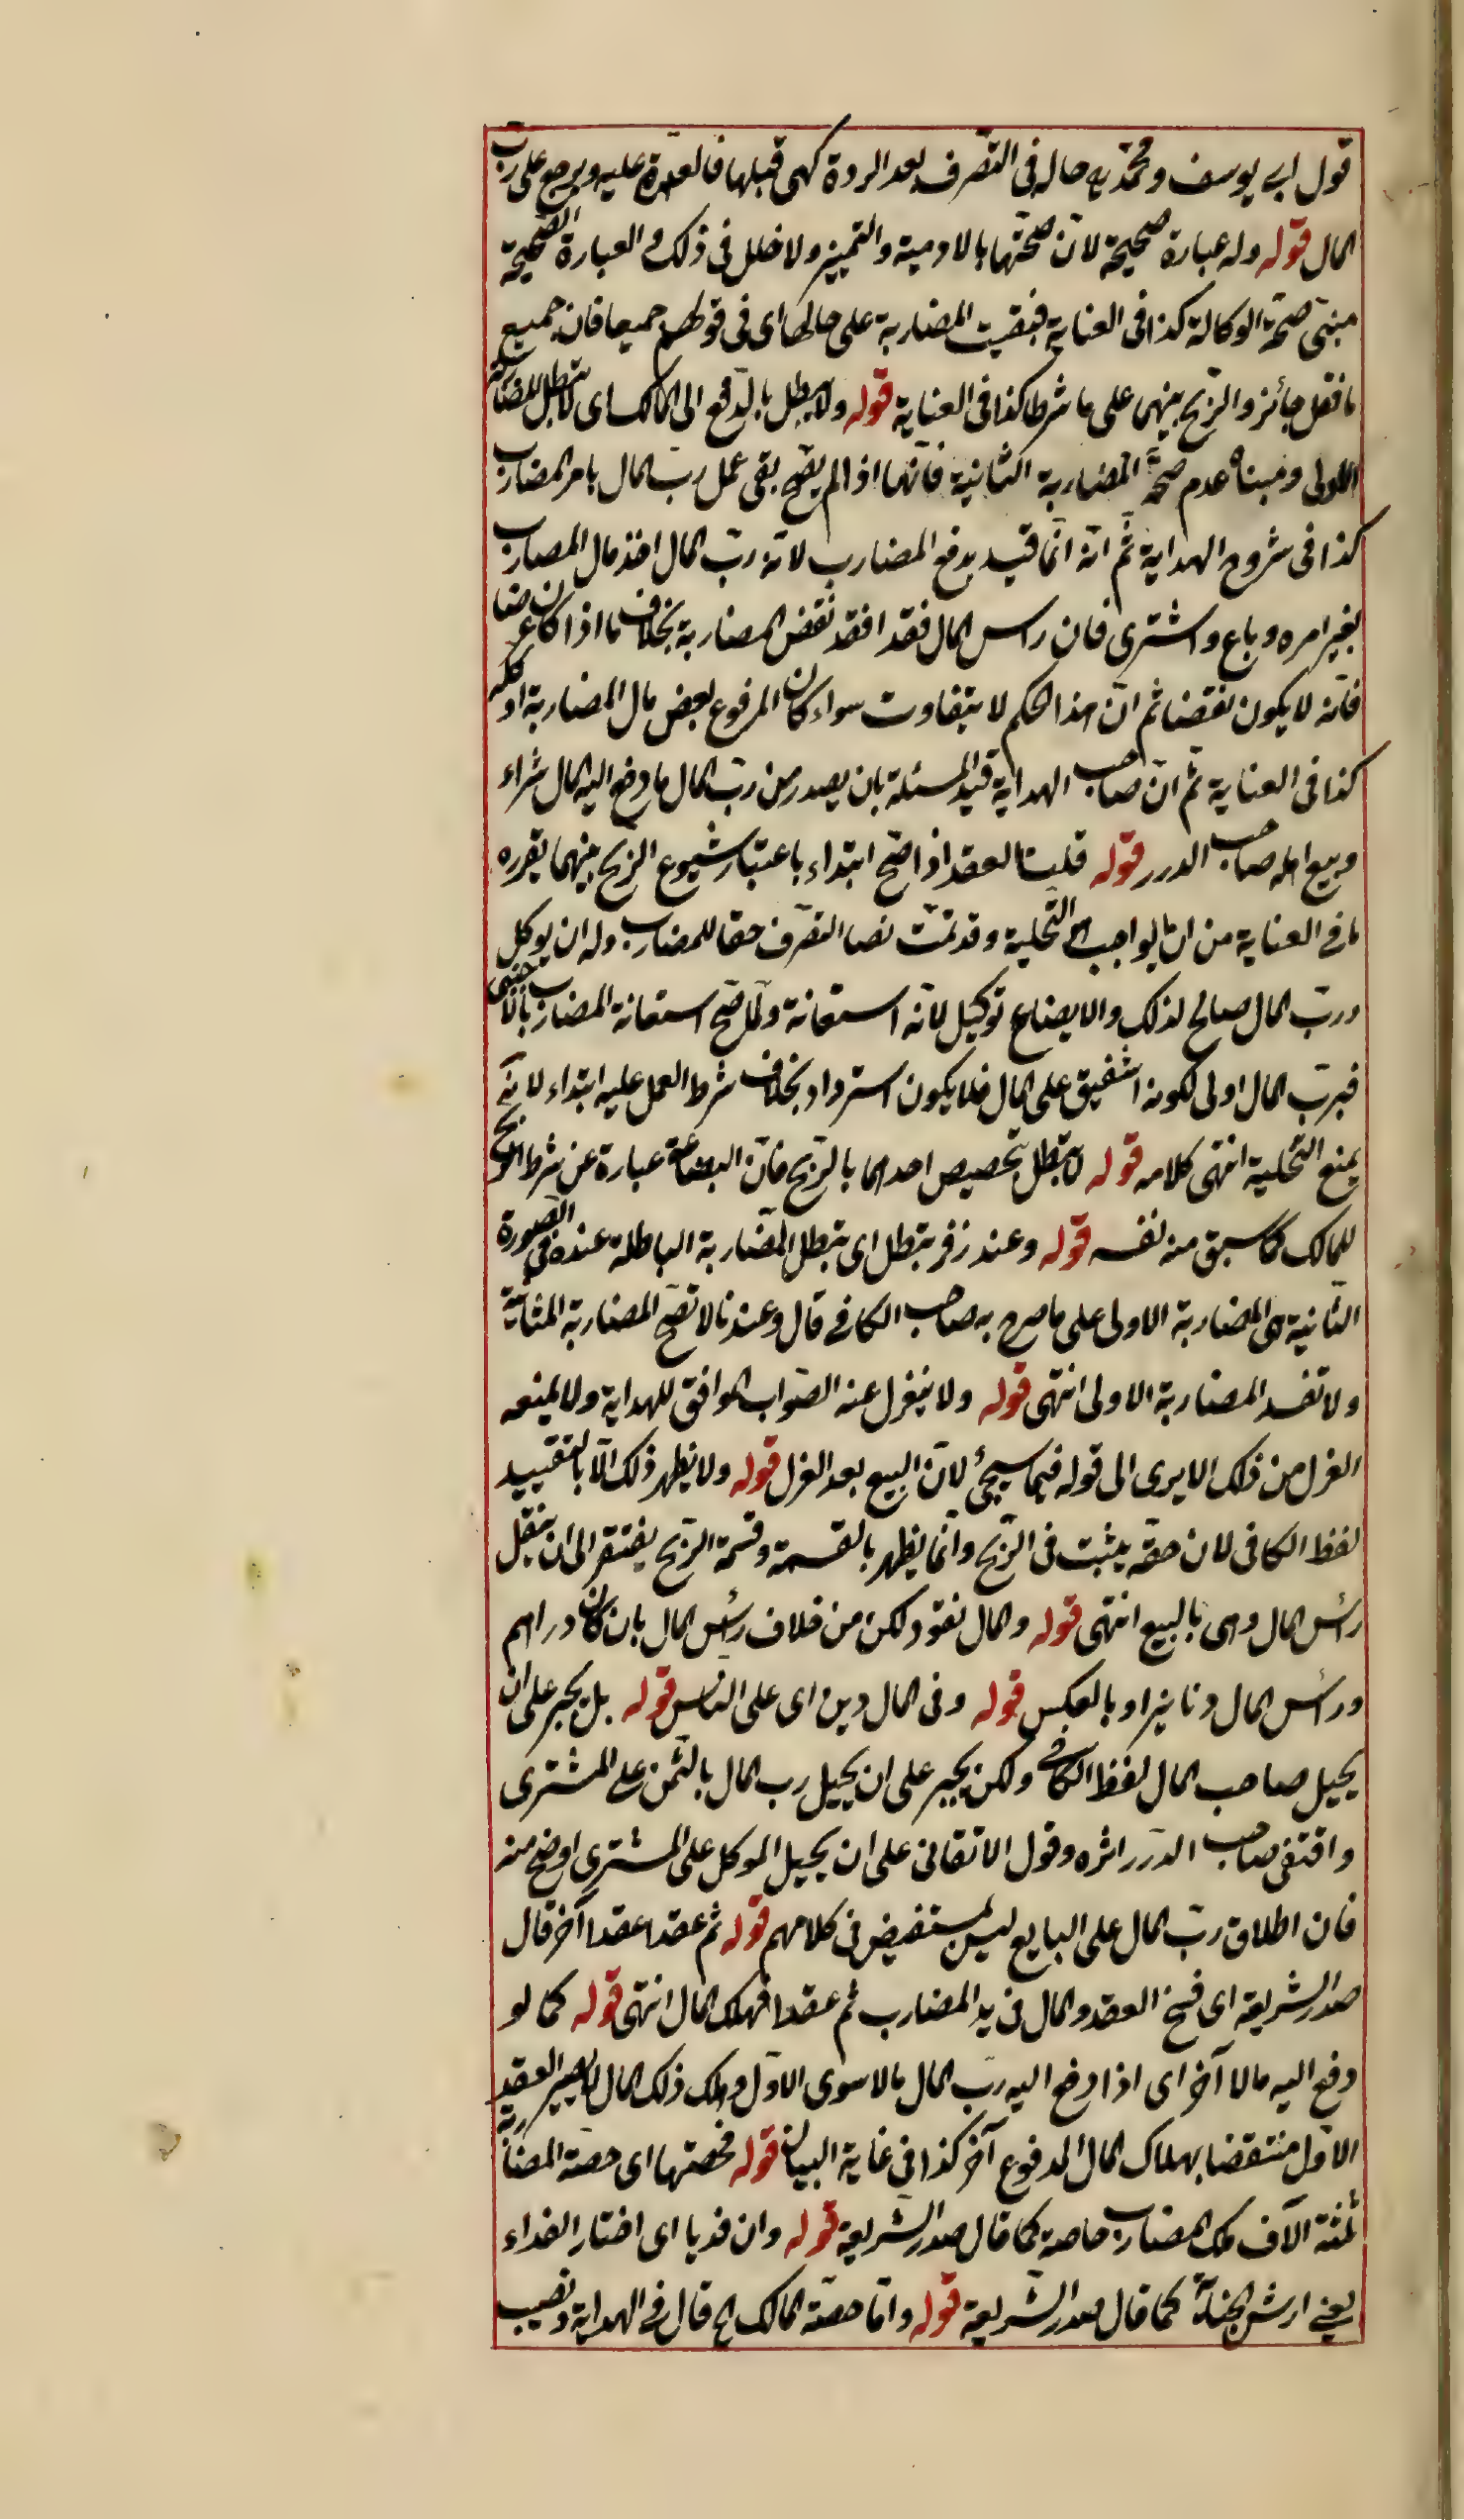 قول ابى يوسف ومحمد به حاله فى التصرف بعد الردة كهى قبلها فالعهدة عليه ويرجع على رب
المال قوله وله عبارة صحيحة لان صحتها بالادمية والتمييز ولا خلل فى ذلك والعبارة الصحيحة
مبنى صحة الوكالة كذا فى العناية فبقيت المضاربة على حالها اى فى قولهم جميعا فان جميع
ما فعل جائز والربح بينهما على ما شرطا كذا فى العناية قوله ولا تبطل بالدفع الى المالك اى لا تبطل المضاربة
الاولى ومبناه عدم صحة المضاربة الثانية فانها اذا لم يصح بقى عمل رب المال بامر المضارب
كذا فى شروح الهداية ثم انه انما قيد بدفع المضارب لانه رب المال اخذ مال المضارب
بغير امره وباع واشترى فان راس المال فقد افقد نقض المضاربة بخلاف ما اذا كان
فانه لا يكون نقضا ثم ان هذا الحكم لا يتفاوت سواء كان المرفوع بعض مال المضاربة او كله
كذا فى العناية ثم ان صاحب الهداية قيد المسئلة بان يصدر من رب المال ما دفع اليه المال شراء
وبيع صاحب الدرر قوله قلت العقد اذا صح ابتداء باعتبار شيوع الربح بينهما يقرره
ما فى العناية من ان الواجب التخلية وقد تمت التصرف حقا للمضارب وله ان يوكل
ورب المال صالح لذلك والابضاع توكيل لانه استعانة ولما صح استعانة المضارب بالاجنبى
فبرب المال اولى لكونه اشفيق على المال فلا يكون استردادا بخلاف شرط العمل عليه ابتداء لانه
يمنع التخلية انتهى كلامه قوله لا تبطل بتخصيص احدهما بالربح فان البضاعة عبارة عن شرط الربح
للمالك كما سبق منه نفسه قوله وعند زفر تبطل اى تبطل المضاربة الباطلة عنده فى الصورة
الثانية هى المضاربة الاولى على ما صرح به صاحب الكافى قال وعندنا لا تصح المضاربة الثانية
ولا تفسد المضاربة الاولى انتهى قوله ولا ينعزل عنه الصواب الموافق للهداية ولا يمنعه
العزل من ذلك الا يرى الى قوله فيما سيجئ لان البيع بعد العزل قوله ولا يظهر ذلك الا بالتقييد
لفظ الكافى لان حقه يثبت فى الربح وانما يظهر بالقسمة وقسمة الربح يفتقر الى ان ينقل
رأس المال وهى بالبيع انتهى قوله والمال نقود لكن من خلاف رأس المال بان كان دراهم
ورأس المال دنانير او بالعكس قوله وفى المال دين اى على الناس قوله بل يجبر على ان
يحيل صاحب المال لفظ الكافى ولكن يجبر على ان يحيل رب المال بالثمن على المشترى
واقتفى صاحب الدرر اثره وقول الاتقانى على ان يحيل الموكل على المشترى اوضح منه
فان اطلاق رب المال على البايع ليس بمستفيض فى كلامهم قوله ثم عقدا عقدا آخر قال
صدر الشريعة اى فسخ العقد والمال فى يد المضارب ثم عقدا فهلك المال انتهى قوله كما لو
دفع اليه مالا آخر اى اذا دفع اليه رب المال مالا سوى الاول وهلك ذلك المال لا يصير العقد
الاول منتقضا بهلاك المال المدفوع آخر كذا فى غاية البيان قوله فحصتها اى حصة المضاربة
ثلثة آلاف ملك المضارب خاصة كما قال صدر الشريعة قوله وان فديا اى اختار الفداء
يعنى ارش الجناية كما قال صدر الشريعة قوله واما حصة المالك الخ قال فى الهداية ونصيب